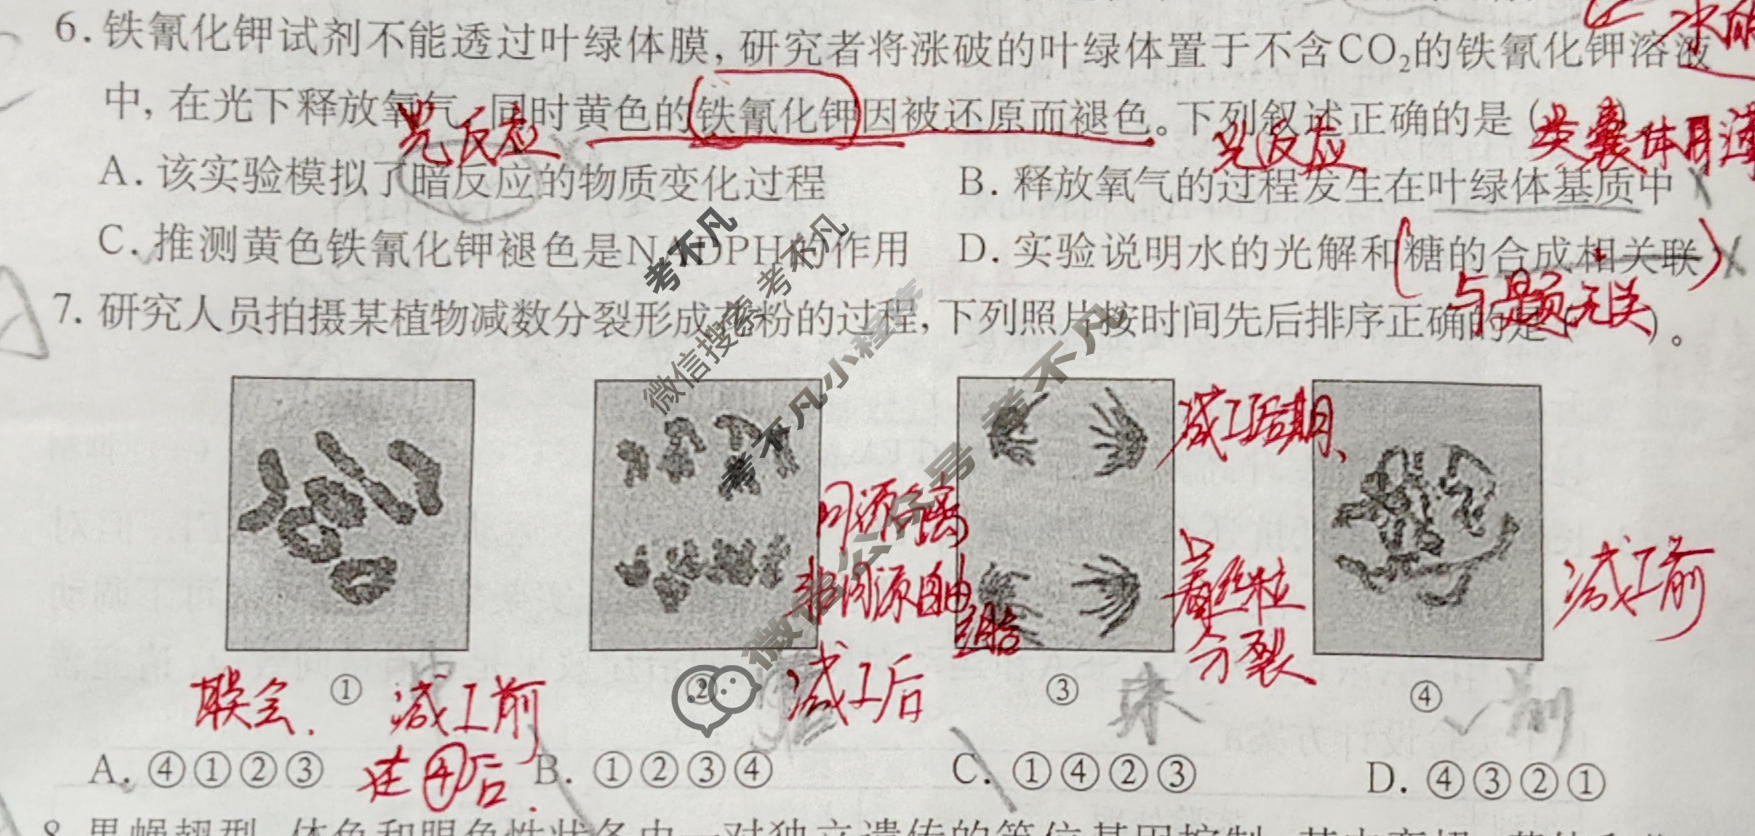 6.铁氰化钾试剂不能透过叶绿体膜,研究者将涨破的叶绿体置于不含CO₂的铁氰化钾溶液
中,在光下释放氧气,同时黄色的铁氰化钾因被还原而褪色。下列叙述正确的是(
光反应
光反应
类囊体月薄
A.该实验模拟了暗反应的物质变化过程
B.释放氧气的过程发生在叶绿体基质中
C.推测黄色铁氰化钾褪色是NADPH的作用
D.实验说明水的光解和糖的合成相关联
与题无关
7.研究人员拍摄某植物减数分裂形成花粉的过程,下列照片按时间先后排序正确的是( )。
减I后期、
同源分离
非同源自由
组合
着丝粒
分裂
减I前
减I后
联会.
减I前
①
②
③
末
④
前
A.④①②③
在④后.
B.①②③④
C.①④②③
D.④③②①
考不凡
微信搜索考不凡
考不凡小程序
微信公众号 考不凡